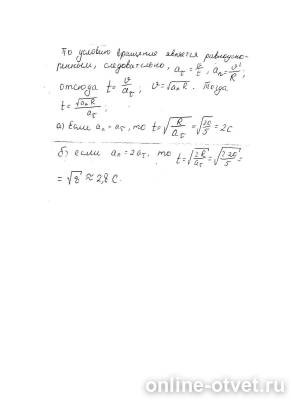 По условию вращение является равноуско-
ренным, следовательно, a_τ = v/t, a_n = v²/R;
отсюда t = v/a_τ; v = √(a_n R). Тогда
t = √(a_n R)/a_τ;
а) Если a_n = a_τ, то t = √(R/a_τ) = √(20/5) = 2с
б) если a_n = 2a_τ, то t = √(2R/a_τ) = √(2·20/5) =
= √8 ≈ 2,8 с.
online-otvet.ru